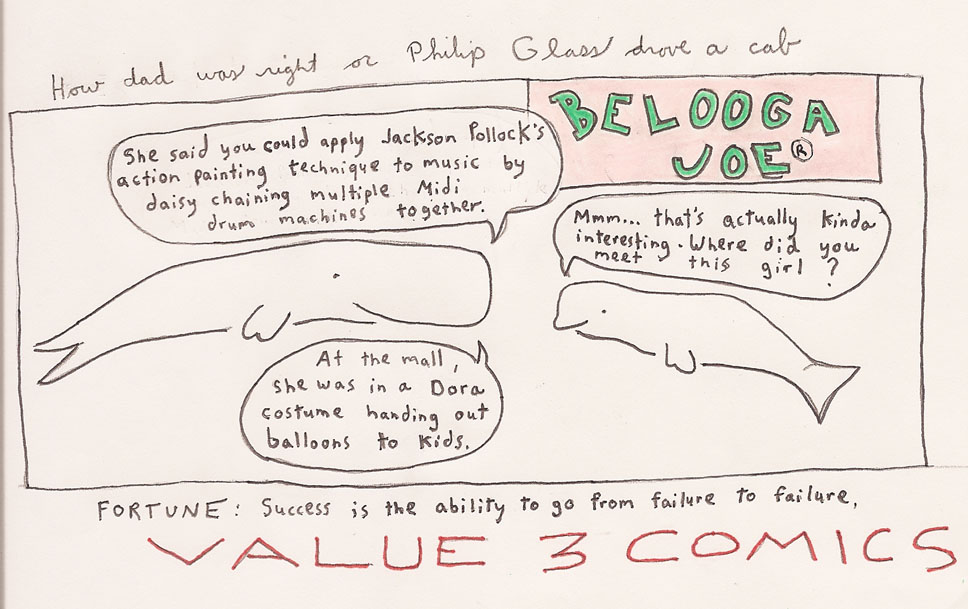 How dad was right or Philip Glass drove a cab
BELOOGA
JOE®
She said you could apply Jackson Pollock's
action painting technique to music by
daisy chaining multiple Midi
drum machines together.
Mmm... that's actually kinda
interesting. Where did you
meet this girl?
At the mall,
she was in a Dora
costume handing out
balloons to kids.
FORTUNE: Success is the ability to go from failure to failure,
VALUE 3 COMICS